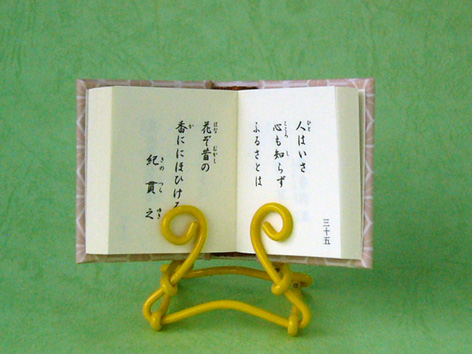 三十五
人はいさ
心も知らず
ふるさとは
花ぞ昔の
香ににほひける
紀貫之